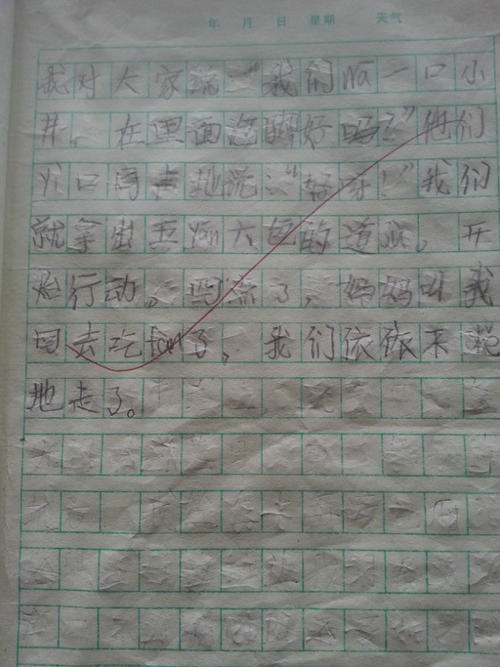 年 月 日 星期 天气
我对大家说:“我们 wā 一口小
井,在里面泡脚好吗?”他们
yì口同声地说:“好呀!”我们
就拿出五 yán 六色的道,开
始行动。了,妈妈叫我
回去吃fan了,我们依依不
地走了。